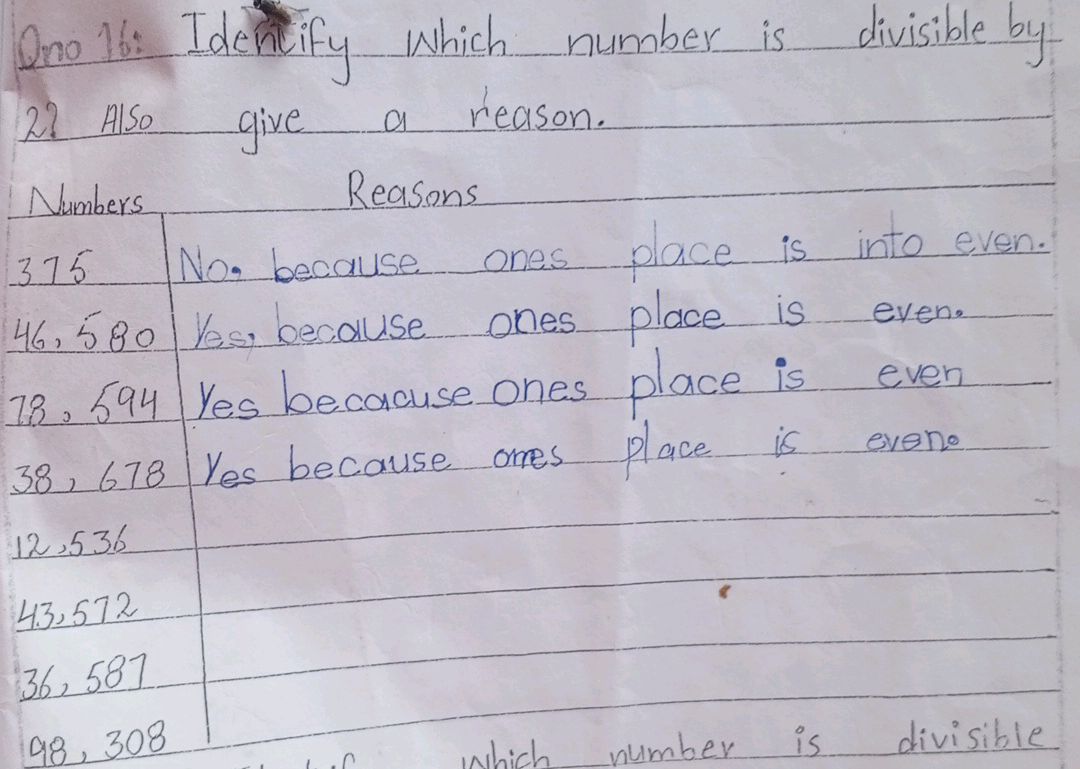 Qno 16: Identify which number is divisible by
2? Also give a reason.
Numbers Reasons
375 No. because ones place is into even.
46,580 Yes, because ones place is even.
78,594 Yes becacuse ones place is even
38,678 Yes because ones place is even.
12,536
43,572
36,587
98,308
which number is divisible